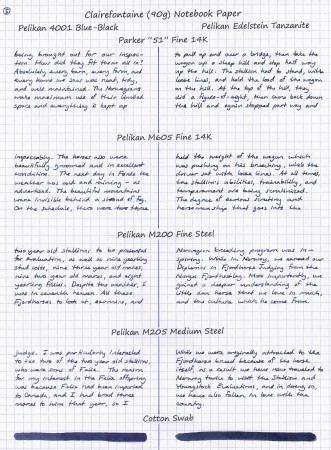 5
Clairefontaine (90g) Notebook Paper
Pelikan 4001 Blue-Black
Pelikan Edelstein Tanzanite
Parker "51" Fine 14K
being brought out for our inspec-
tion: how did they fit them all in?
Absolutely every barn, every farm, and
every home we saw was neat, tidy,
and well maintained. The Norwegians
make maximum use of their limited
space and everything is kept up
to pull up and over a bridge, then take the
wagon up a steep hill and stop half way
up the hill. The stallion had to stand, with
loose lines, and hold the load of the wagon
on the hill. At the top of the hill, they
did a figure-of-eight, then came back down
the hill and again stopped part way and
Pelikan M605 Fine 14K
impeccably. The horses also were
beautifully groomed and in excellent
condition. The next day in Førde the
weather was cold and raining - as
advertised. The beautiful mountains
were invisible behind a shroud of fog.
On the schedule, there were three
held the weight of the wagon which
was pushing on his breeching, while the
driver sat with loose lines. At all times,
the stallion's abilities, trainability, and
temperament are being scrutinized.
The degree of serious scrutiny and
horsemanship that goes into the
Pelikan M200 Fine Steel
two year old stallions to be presented
for evaluation, as well as nine yearling
stud colts, nine three year old mares,
nine two year old mares, and eight
yearling fillies. Despite the weather, I
was in seventh heaven. All those
Fjordhorses to look at, examine, and
Norwegian breeding program was in-
spiring. While in Norway, we earned our
Diplomas in Fjordhorse Judging from the
Norges Fjordhestlag. More importantly, we
gained a deeper understanding of the
little dun horse that we love so much,
and the culture which he comes from.
Pelikan M205 Medium Steel
judge. I was particularly interested
to see two of the two year old stallions,
who were sons of Felix. The reason
for my interest in the Felix offspring
was because Felix had been imported
to Canada, and I had bred three
mares to him that year, so I
While we were originally attracted to the
Fjordhorse breed because of the horse
itself, as a result we have now traveled to
Norway twice to visit the Stallion and
Youngstock Evaluations, and in doing so,
we have also fallen in love with the
country.
Cotton Swab